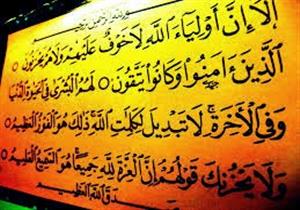 بسم الله الرحمن الرحيم
أَلَا إِنَّ أَوْلِيَاءَ اللَّهِ لَا خَوْفٌ عَلَيْهِمْ وَلَا هُمْ يَحْزَنُونَ ○
الَّذِينَ آمَنُوا وَكَانُوا يَتَّقُونَ ○ لَهُمُ الْبُشْرَى فِي الْحَيَوةِ الدُّنْيَا
وَفِي الْآخِرَةِ لَا تَبْدِيلَ لِكَلِمَتِ اللَّهِ ذَلِكَ هُوَ الْفَوْزُ الْعَظِيمُ ○
وَلَا يَحْزُنْكَ قَوْلُهُمْ إِنَّ الْعِزَّةَ لِلَّهِ جَمِيعًا هُوَ السَّمِيعُ الْعَلِيمُ ○
صدق الله العظيم